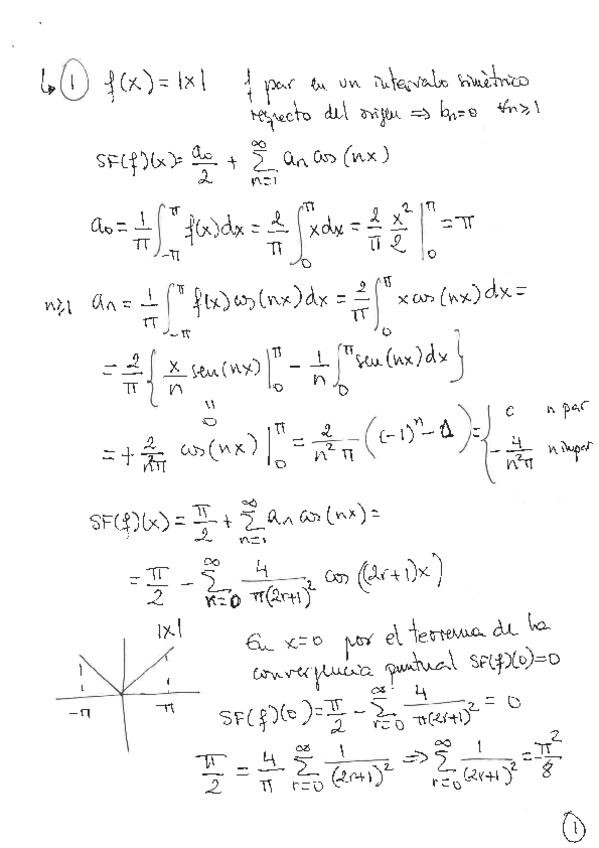 ↳ ① f(x) = |x| f par en un intervalo simétrico
respecto del origen ⇒ bn=0 ∀n≥1
SF(f)(x) = a₀/2 + ∑_{n=1}^{∞} an cos(nx)
a₀ = 1/π ∫_{-π}^{π} f(x)dx = 2/π ∫_0^π x dx = 2/π x²/2 |_0^π = π
n≥1 an = 1/π ∫_{-π}^{π} f(x) cos(nx) dx = 2/π ∫_0^π x cos(nx) dx =
= 2/π { x/n sen(nx) |_0^π - 1/n ∫_0^π sen(nx) dx }
"
0
= + 2/(n²π) cos(nx) |_0^π = 2/(n²π) ((-1)^n - 1) = { 0 n par
- 4/(n²π) n impar
SF(f)(x) = π/2 + ∑_{n=1}^{∞} an cos(nx) =
= π/2 - ∑_{r=0}^{∞} 4/(π(2r+1)²) cos((2r+1)x)
|x|
-π π
En x=0 por el teorema de la
convergencia puntual SF(f)(0)=0
SF(f)(0) = π/2 - ∑_{r=0}^{∞} 4/(π(2r+1)²) = 0
π/2 = 4/π ∑_{r=0}^{∞} 1/(2r+1)² ⇒ ∑_{r=0}^{∞} 1/(2r+1)² = π²/8
①